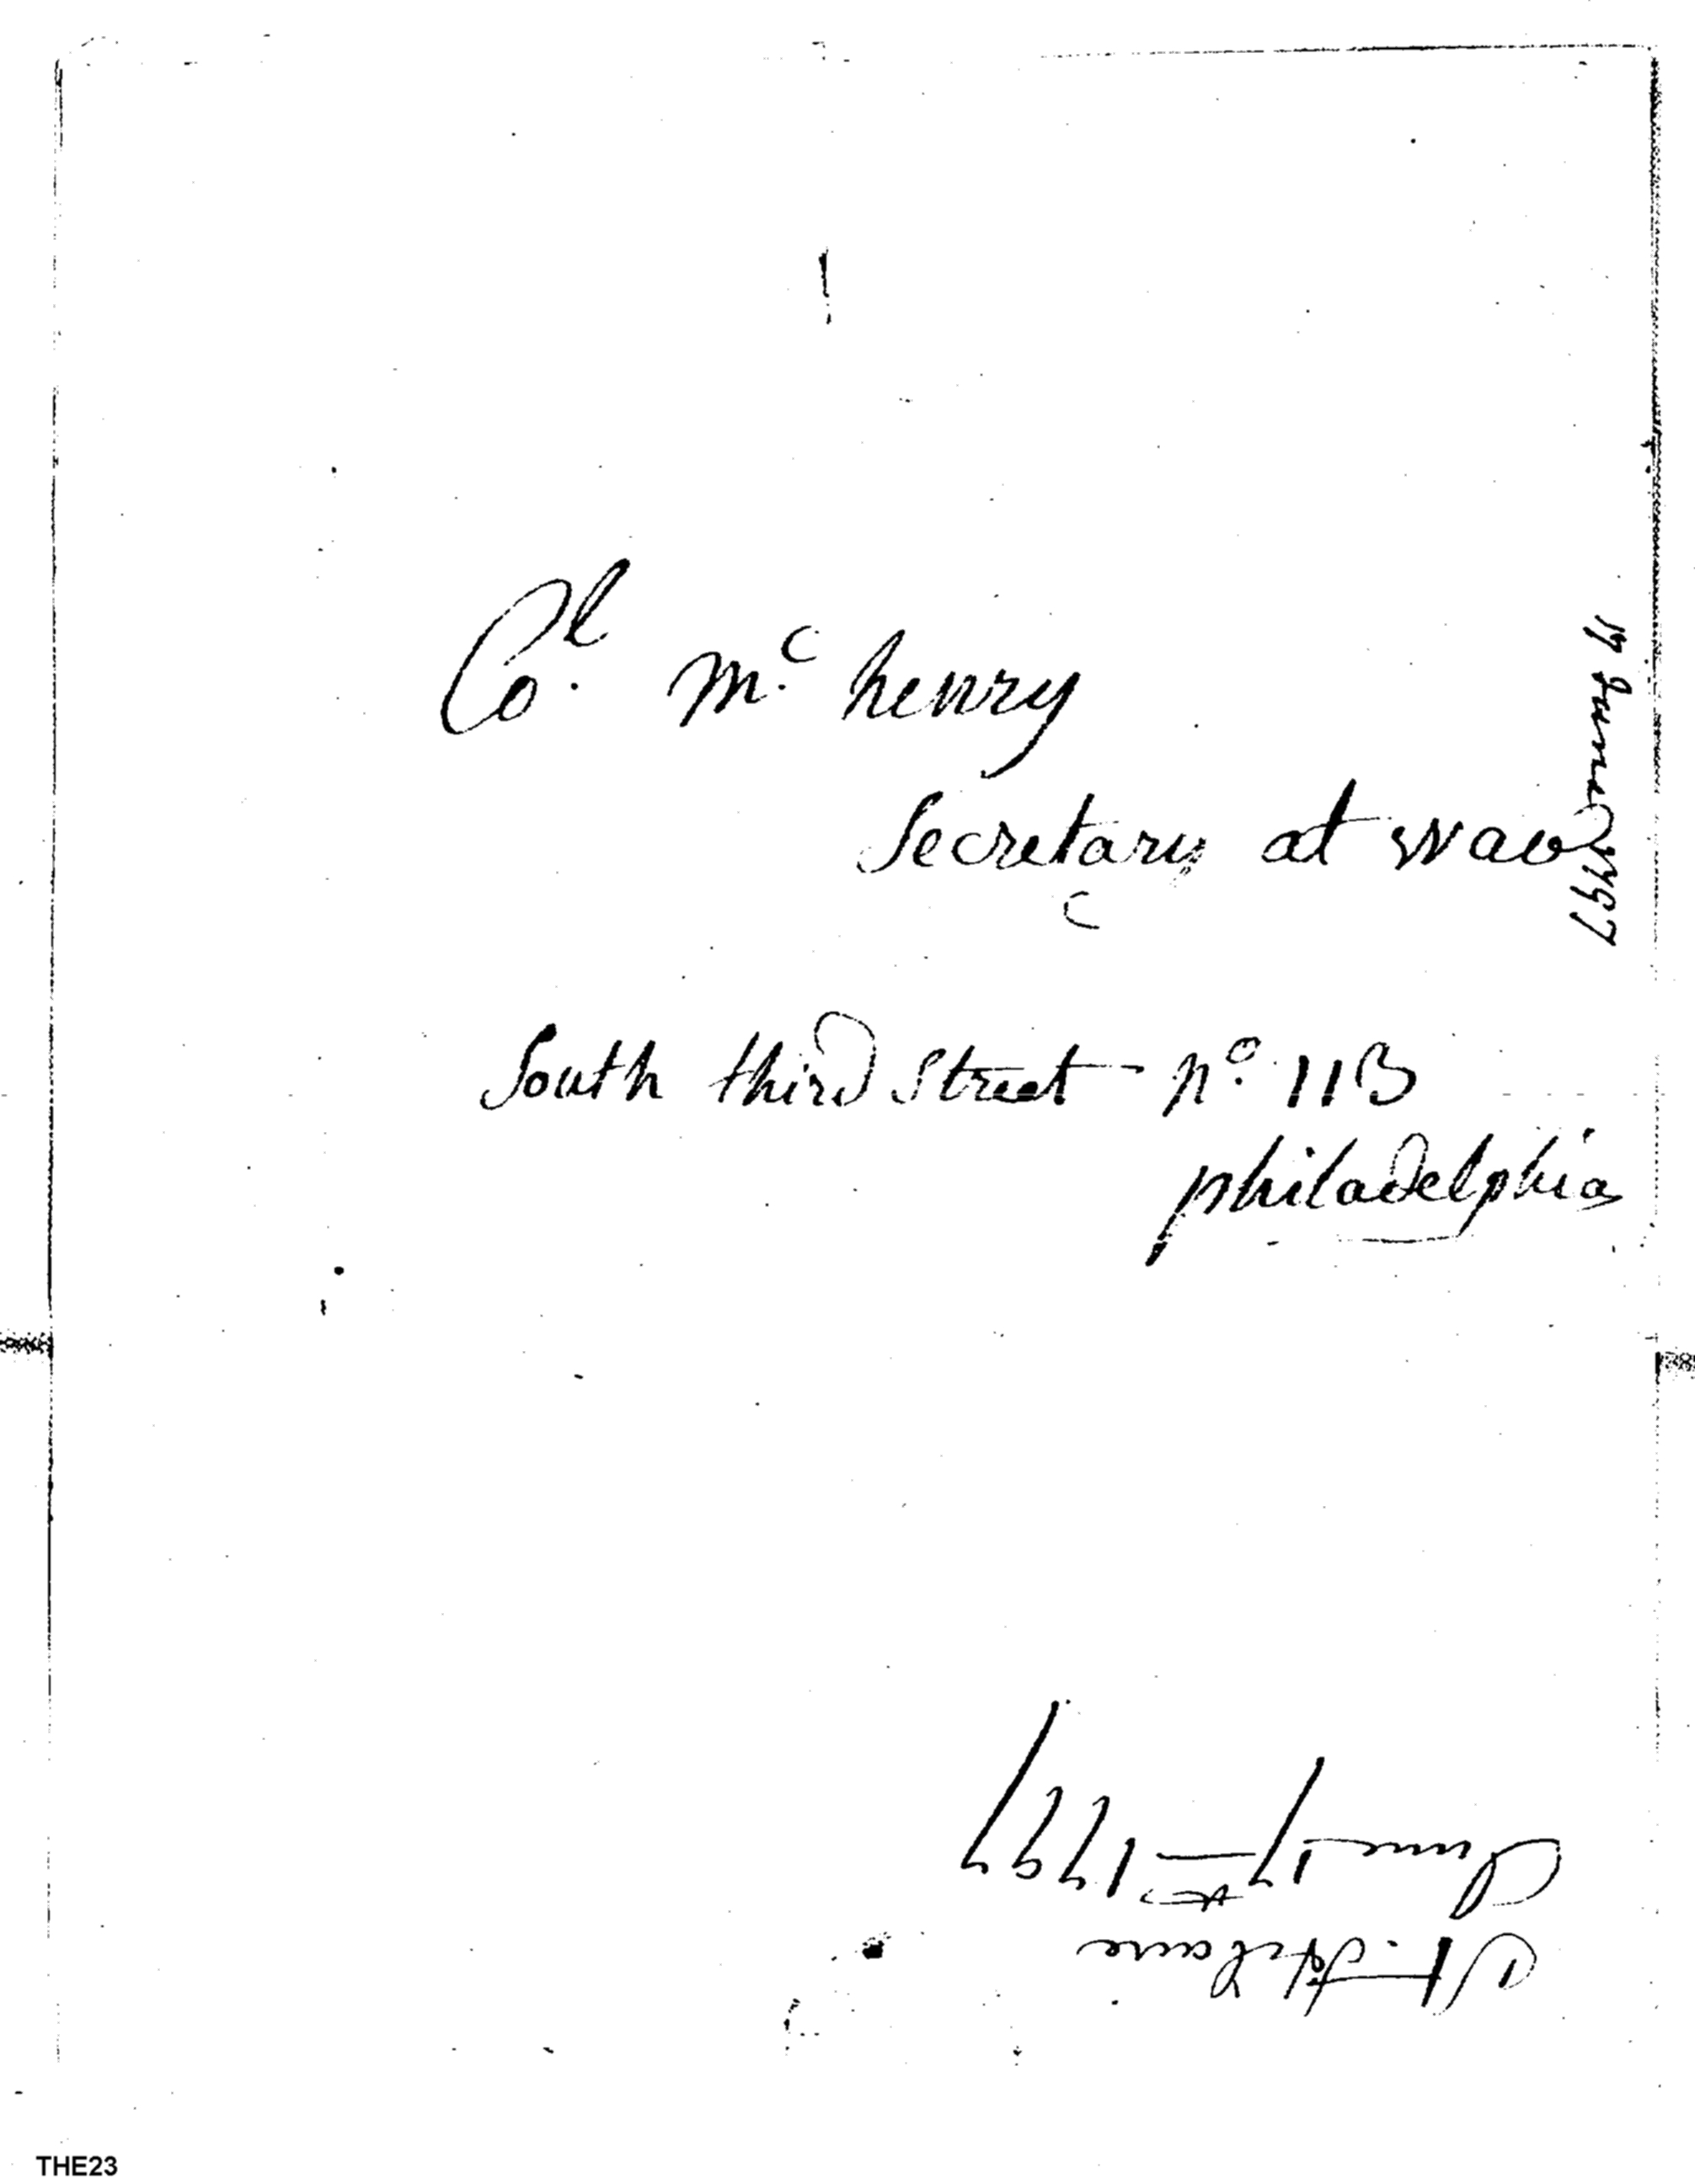 Col. Mc. henry
Secretary at war
17 June 1797
South third Street no. 113
philadelphia
June 17th 1797
THE23